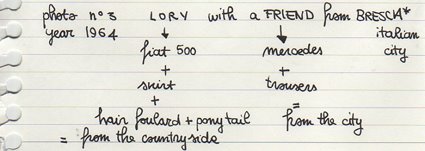 photo n° 3 LORY with a FRIEND from BRESCIA*
year 1964 italian
fiat 500 mercedes city
+ +
skirt trousers
+ =
hair foulard + pony tail from the city
= from the countryside